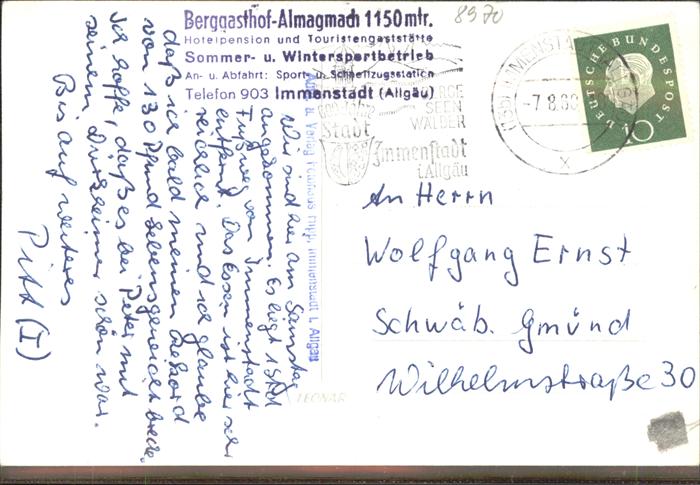 8970
Berggasthof-Almagmach 1150 mtr.
Hotelpension und Touristengaststätte
Sommer- u. Wintersportbetrieb
An- u. Abfahrt: Sport- u. Schnellzugsstation
Telefon 903 Immenstadt (Allgäu)
SEEN
WÄLDER
Stadt
Immenstadt
i. Allgäu
IMMENSTADT
-7.8.60
x
DEUTSCHE BUNDESPOST
10
An Herrn
Wolfgang Ernst
Schwäb. Gmünd
Wilhelmstraße 30
Wir sind hier am Samstag
angekommen. Es liegt 1 Std
Fußweg von Immenstadt
entfernt. Das Essen ist hier sehr
reichlich und ich glaube
daß ich bald meinen Rekord
von 130 Pfund Lebensgewicht breche.
Ich hoffe, daß es bei Peter mit
seinem schön war.
Bis auf weiteres
Pitt (I)
Immenstadt i. Allgäu
LEONAR